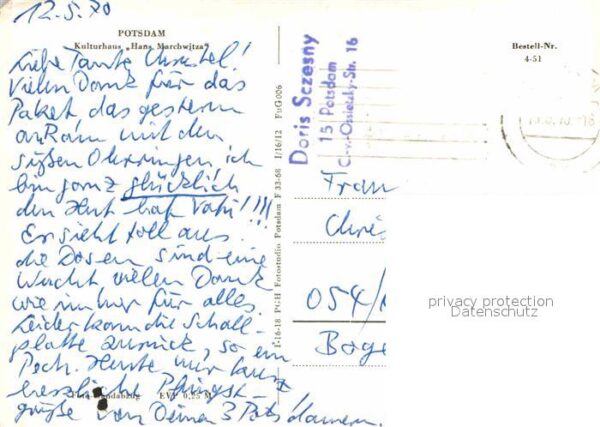 12.5.70
POTSDAM
Kulturhaus „Hans Marchwitza"
Liebe Tante Christel!
Vielen Dank für das
Paket das gestern
ankam mit den
süßen Ohrringen ich
bin ganz glücklich
den Hut hat Vati!!!
Er sieht toll aus.
die Dosen sind eine
Wucht vielen Dank
wie immer für alles.
Leider kam die Schall-
platte zurück, so ein
Pech. Heute nur kurz
herzliche Pfingst-
grüße von Deinen 3 Potsdamern.
EVP 0,25 M
I-16-18 PGH Fotostudio Potsdam F 33-68 I/16/12 FbG006
Doris Sczesny
15 Potsdam
C.-v.-Ossietzky-Str. 16
Bestell-Nr.
4-51
Frau
Chris
054/
Boge
privacy protection
Datenschutz